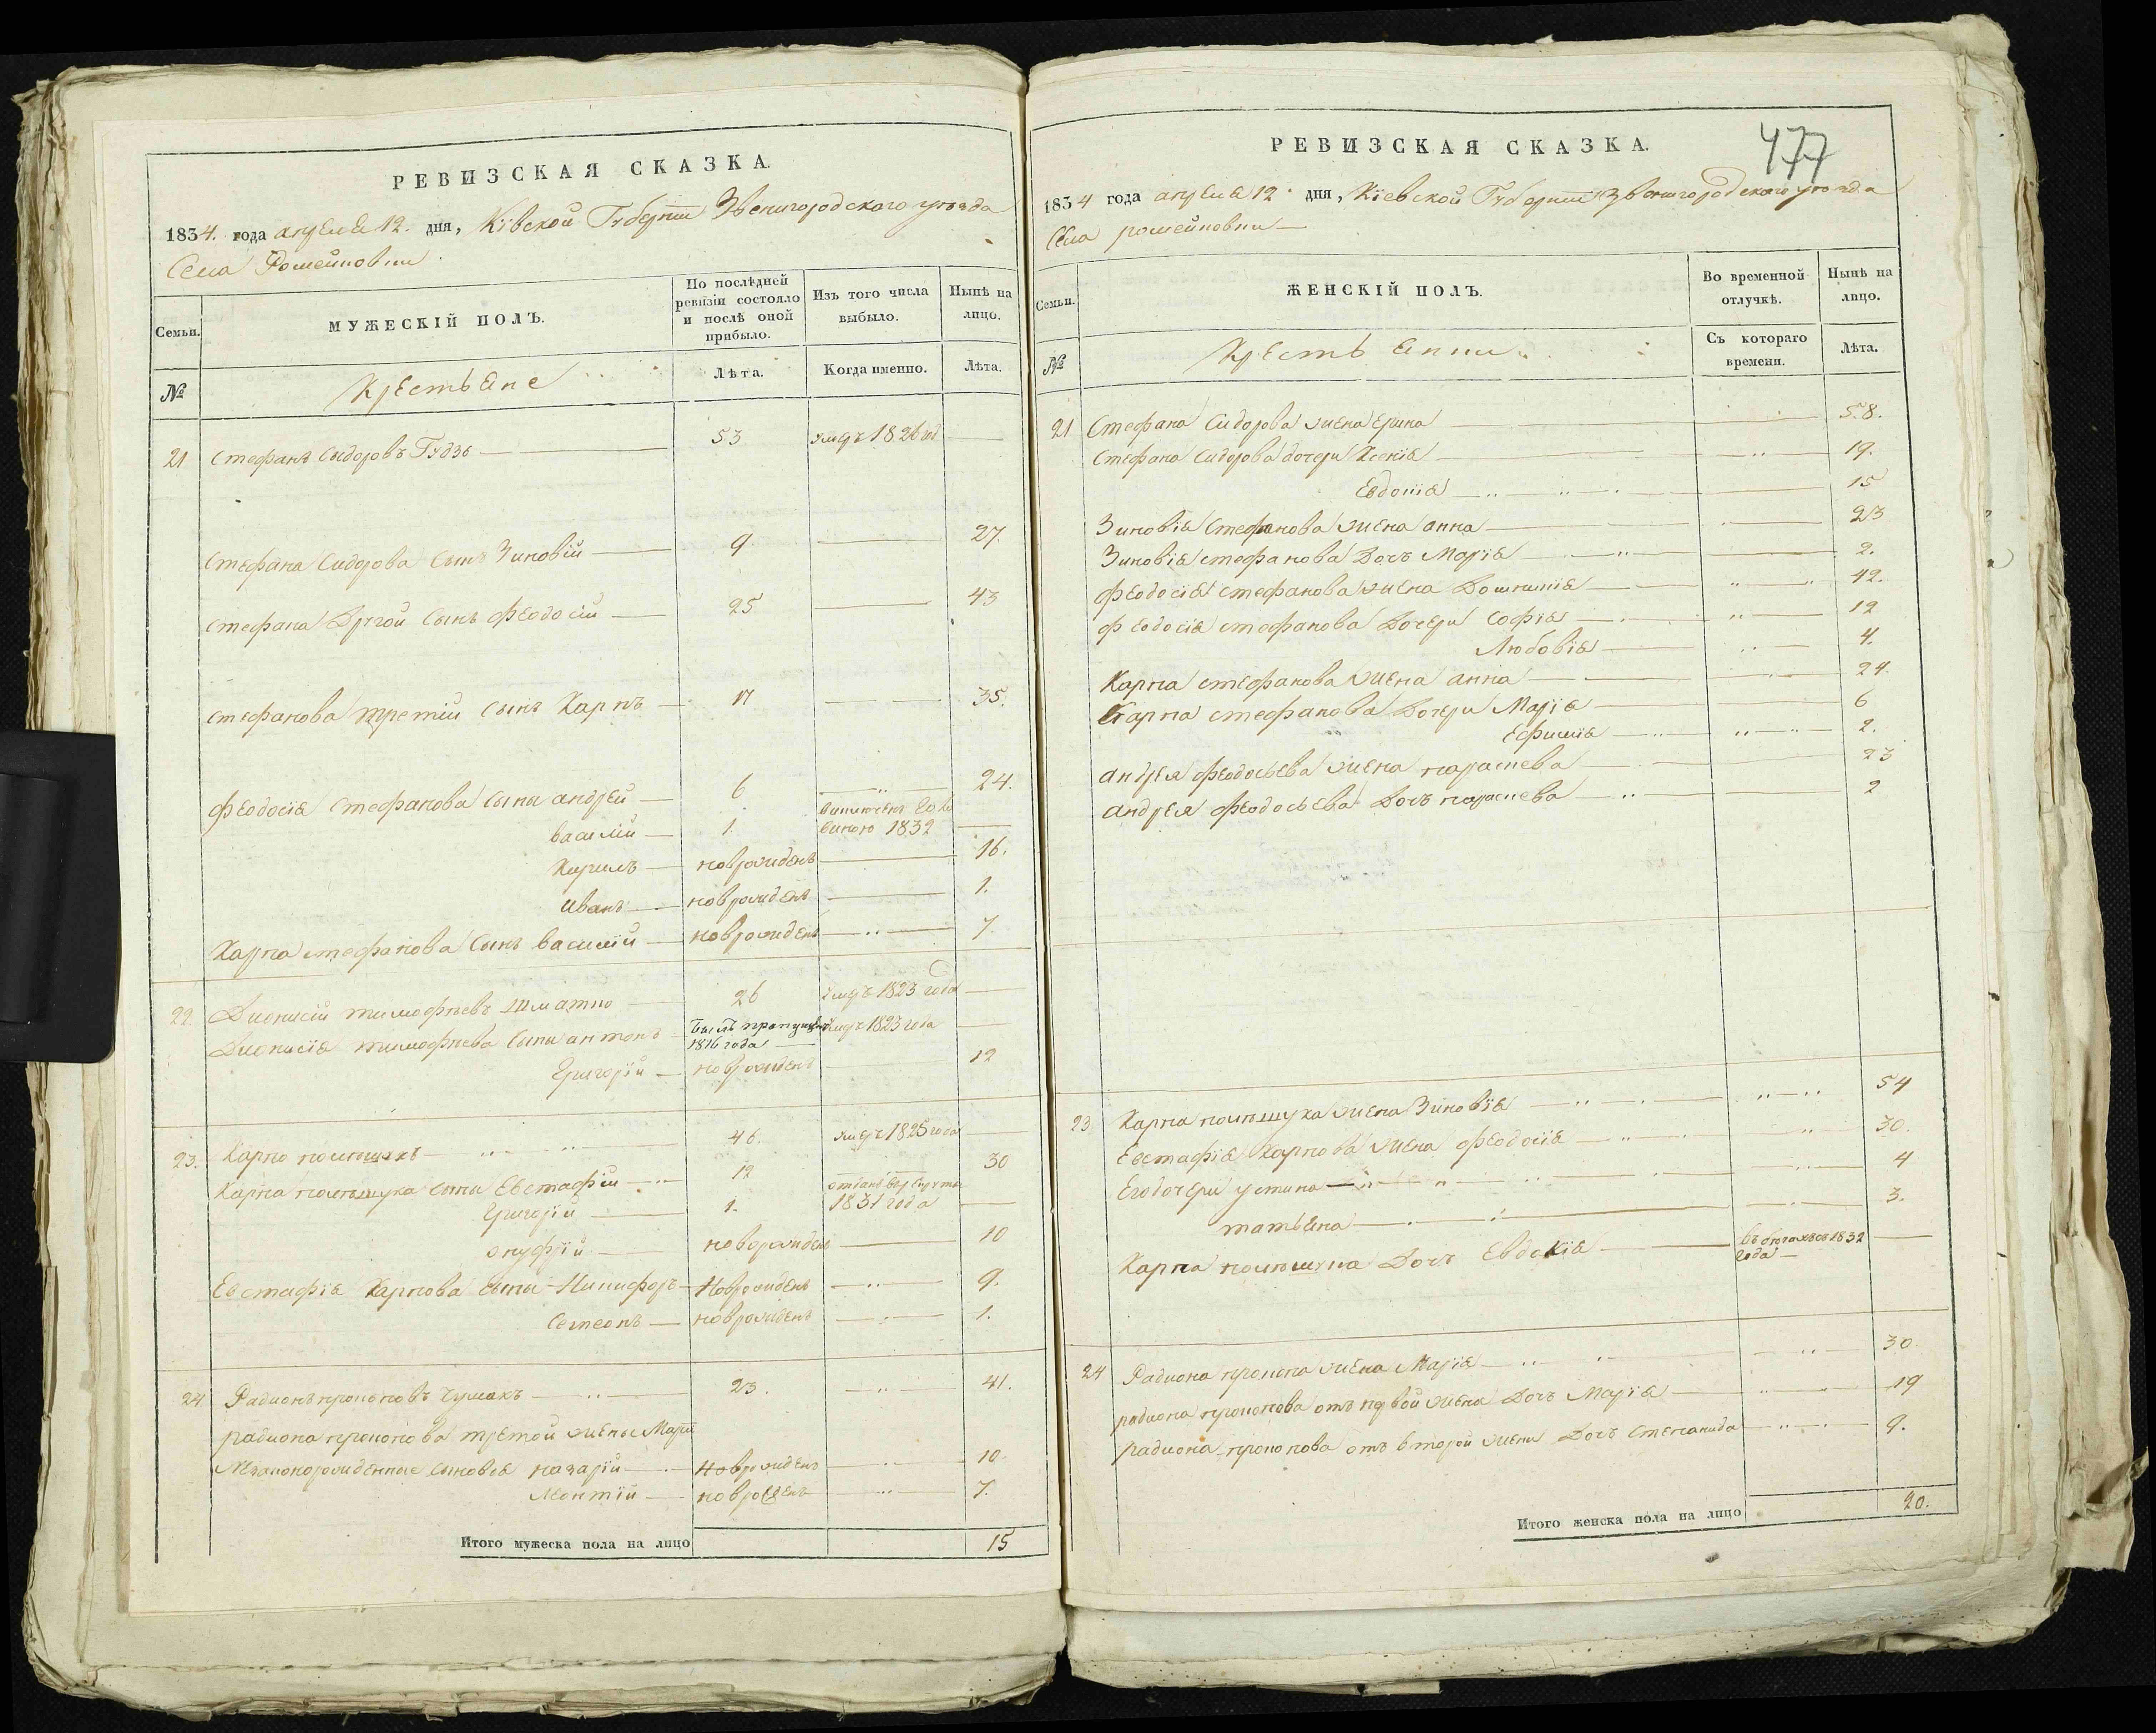 РЕВИЗСКАЯ СКАЗКА.
1834. года апреля 12. дня, Кіевской Губерніи Звенигородского уѣзда
Села Ромейновки
Семьи.
МУЖЕСКІЙ ПОЛЪ.
По послѣдней ревизіи состояло и послѣ оной прибыло.
Изъ того числа выбыло.
Нынѣ на лицо.
№
Крестьяне
Лѣта.
Когда именно.
Лѣта.
21 Стефанъ Сыдоровъ Гудзь 53 умеръ 1826 год
Стефана Сидорова Сынъ Зиновій 9. 27.
Стефана Другой Сынъ Феодосій 25 43
Стефанова третій Сынъ Карпъ 17 35.
Феодосія Стефанова Сыны андрей 6 24.
василій 1. 1832
Кирилъ новрожденъ 16.
Иванъ новрожденъ 1.
Карпа стефанова Сынъ василій новрожденъ 7.
22. Дионисій тимофѣевъ Шматко 26 умеръ 1823 года
Дионисія тимофѣева Сыны антонъ былъ пропущенъ 1816 года умеръ 1823 года
Григорій новрожденъ 12
23. Карпо полѣщукъ 46. умеръ 1825 года
Карпа полѣщука сыны Евстафій 12 30
Григорій 1. отданъ въ рекруты 1831 года
онуфрій новорожденъ 10
Евстафія Карпова сыны Никифоръ Новрожденъ 9.
Семеонъ новрожденъ 1.
24 Радионъ прокоповъ Чумакъ 23. 41.
радиона прокопова третой жены Маріи
сыновья назарій Новрожденъ 10.
Леонтій новрожденъ 7.
Итого мужеска пола на лицо 15
477
РЕВИЗСКАЯ СКАЗКА.
1834 года апреля 12. дня, Кіевской Губерніи Звенигородского уѣзда
Села ромейновки
Семьи.
ЖЕНСКІЙ ПОЛЪ.
Во временной отлучкѣ.
Нынѣ на лицо.
№
Крестьянки
Съ котораго времени.
Лѣта.
21 Стефана Сидорова жена Ерина 58.
Стефана Сидорова дочери Ксенія 19.
Евдокія 15
Зиновія Стефанова жена анна 23
Зиновія стефанова Дочъ Марія 2.
Феодосія стефанова жена Домникія 42.
Феодосія стефанова Дочери Софія 12
Любовія 4.
Карпа стефанова жена анна 24.
Карпа стефанова Дочери Марія 6
Ефимія 2.
андрея феодосьева жена параскева 23
андрея феодосьева Дочъ параскева 2
23 Карпа полѣщука жена Зиновія 54
Евстафія Карпова жена феодосія 30.
Его дочери устина 4
татьяна 3.
Карпа полѣщука Дочъ Евдокія въ бѣгахъ съ 1832 года
24 Радиона прокопа жена Марія 30.
радиона прокопова отъ первой жены Дочъ Марія 19
радиона прокопова отъ второй жены Дочъ Степанида 9.
Итого женска пола на лицо 20.